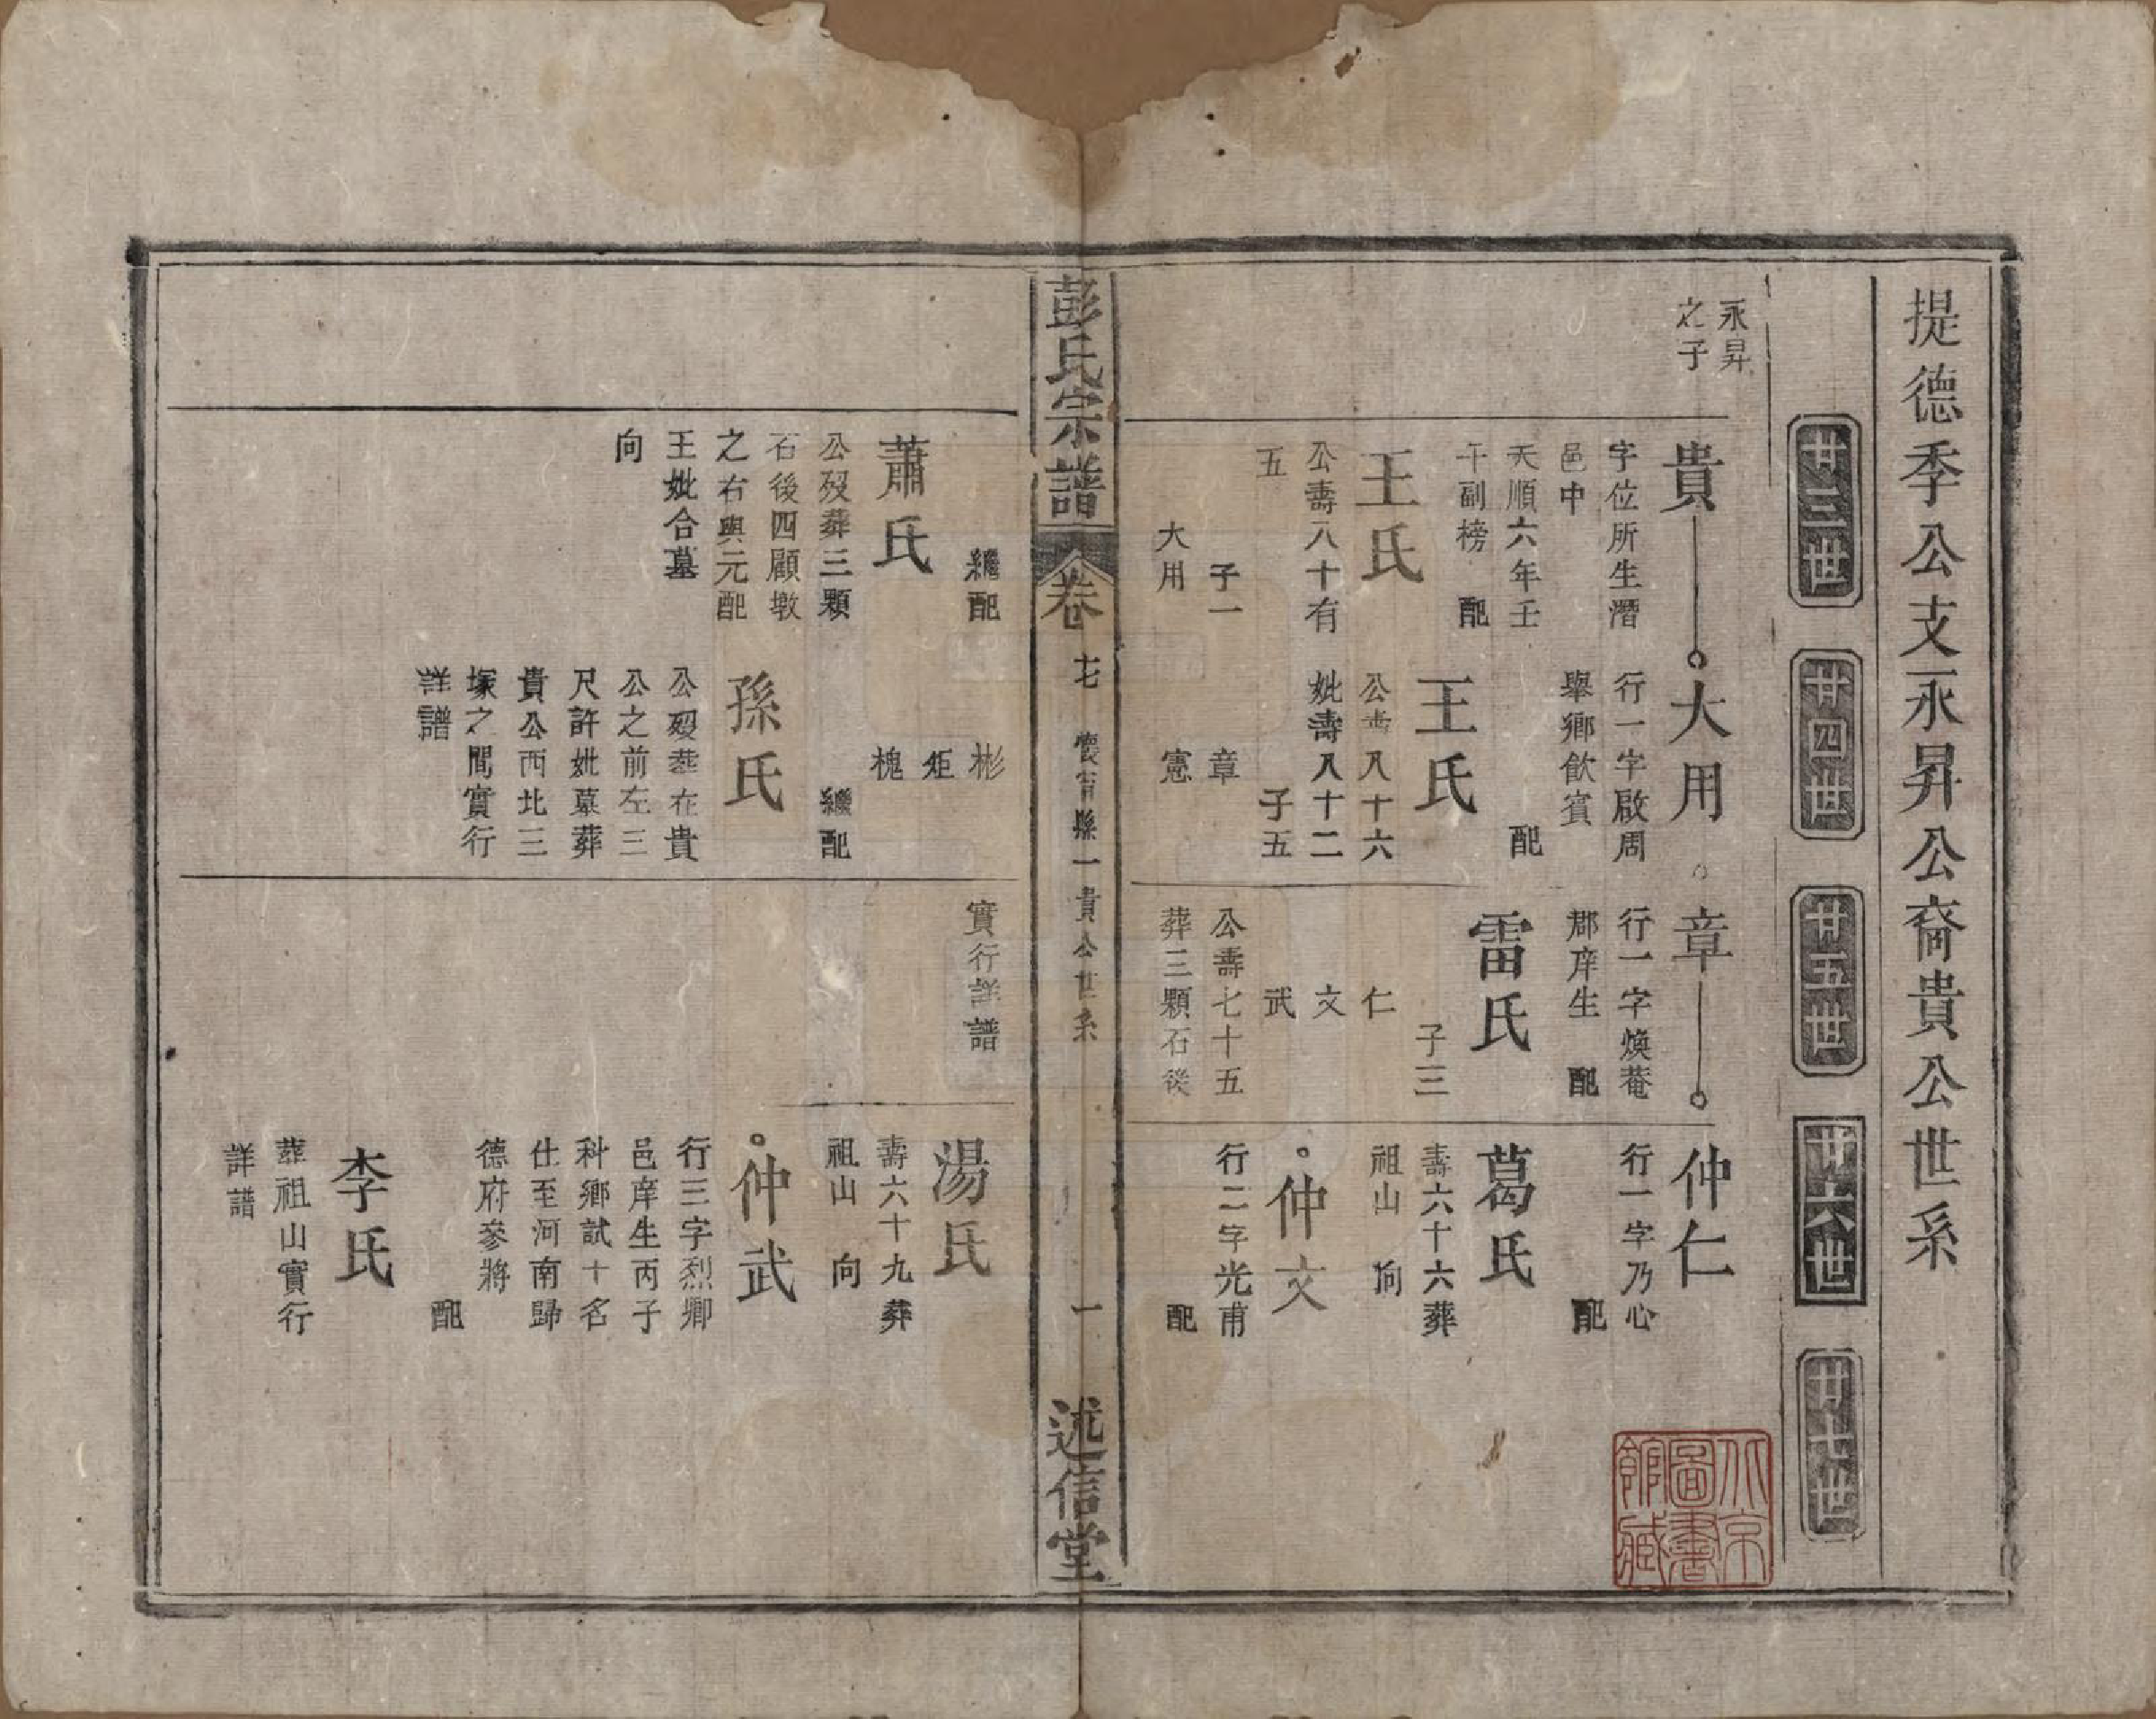 提德季公支永昇公裔貴公世系
廿三世
廿四世
廿五世
廿六世
廿七世
永昇
之子
貴
字位所生潛
邑中
天順六年壬
午副榜 配
王氏
公壽八十有
五
子一
大用
大用
行一字啟周
舉鄉飲賓
配
王氏
公壽八十六
妣壽八十二
子五
章
憲
章
行一字煥菴
郡庠生 配
雷氏
子三
仁
文
武
公壽七十五
葬三顆石後
仲仁
行一字乃心
配
葛氏
壽六十六葬
祖山 向
仲文
行二字光甫
配
彭氏宗譜
卷
七 懷甯縣一貴公世系
一
述信堂
繼配
蕭氏
公歿葬三顆
石後四顧墩
之右與元配
王妣合墓
向
彬
炬
槐
繼配
孫氏
公歿葬在貴
公之前左三
尺許妣墓葬
貴公西北三
塚之間實行
詳譜
實行詳譜
湯氏
壽六十九葬
祖山 向
仲武
行三字烈卿
邑庠生丙子
科鄉試十名
仕至河南歸
德府參將
配
李氏
葬祖山實行
詳譜
北京
圖書
館藏